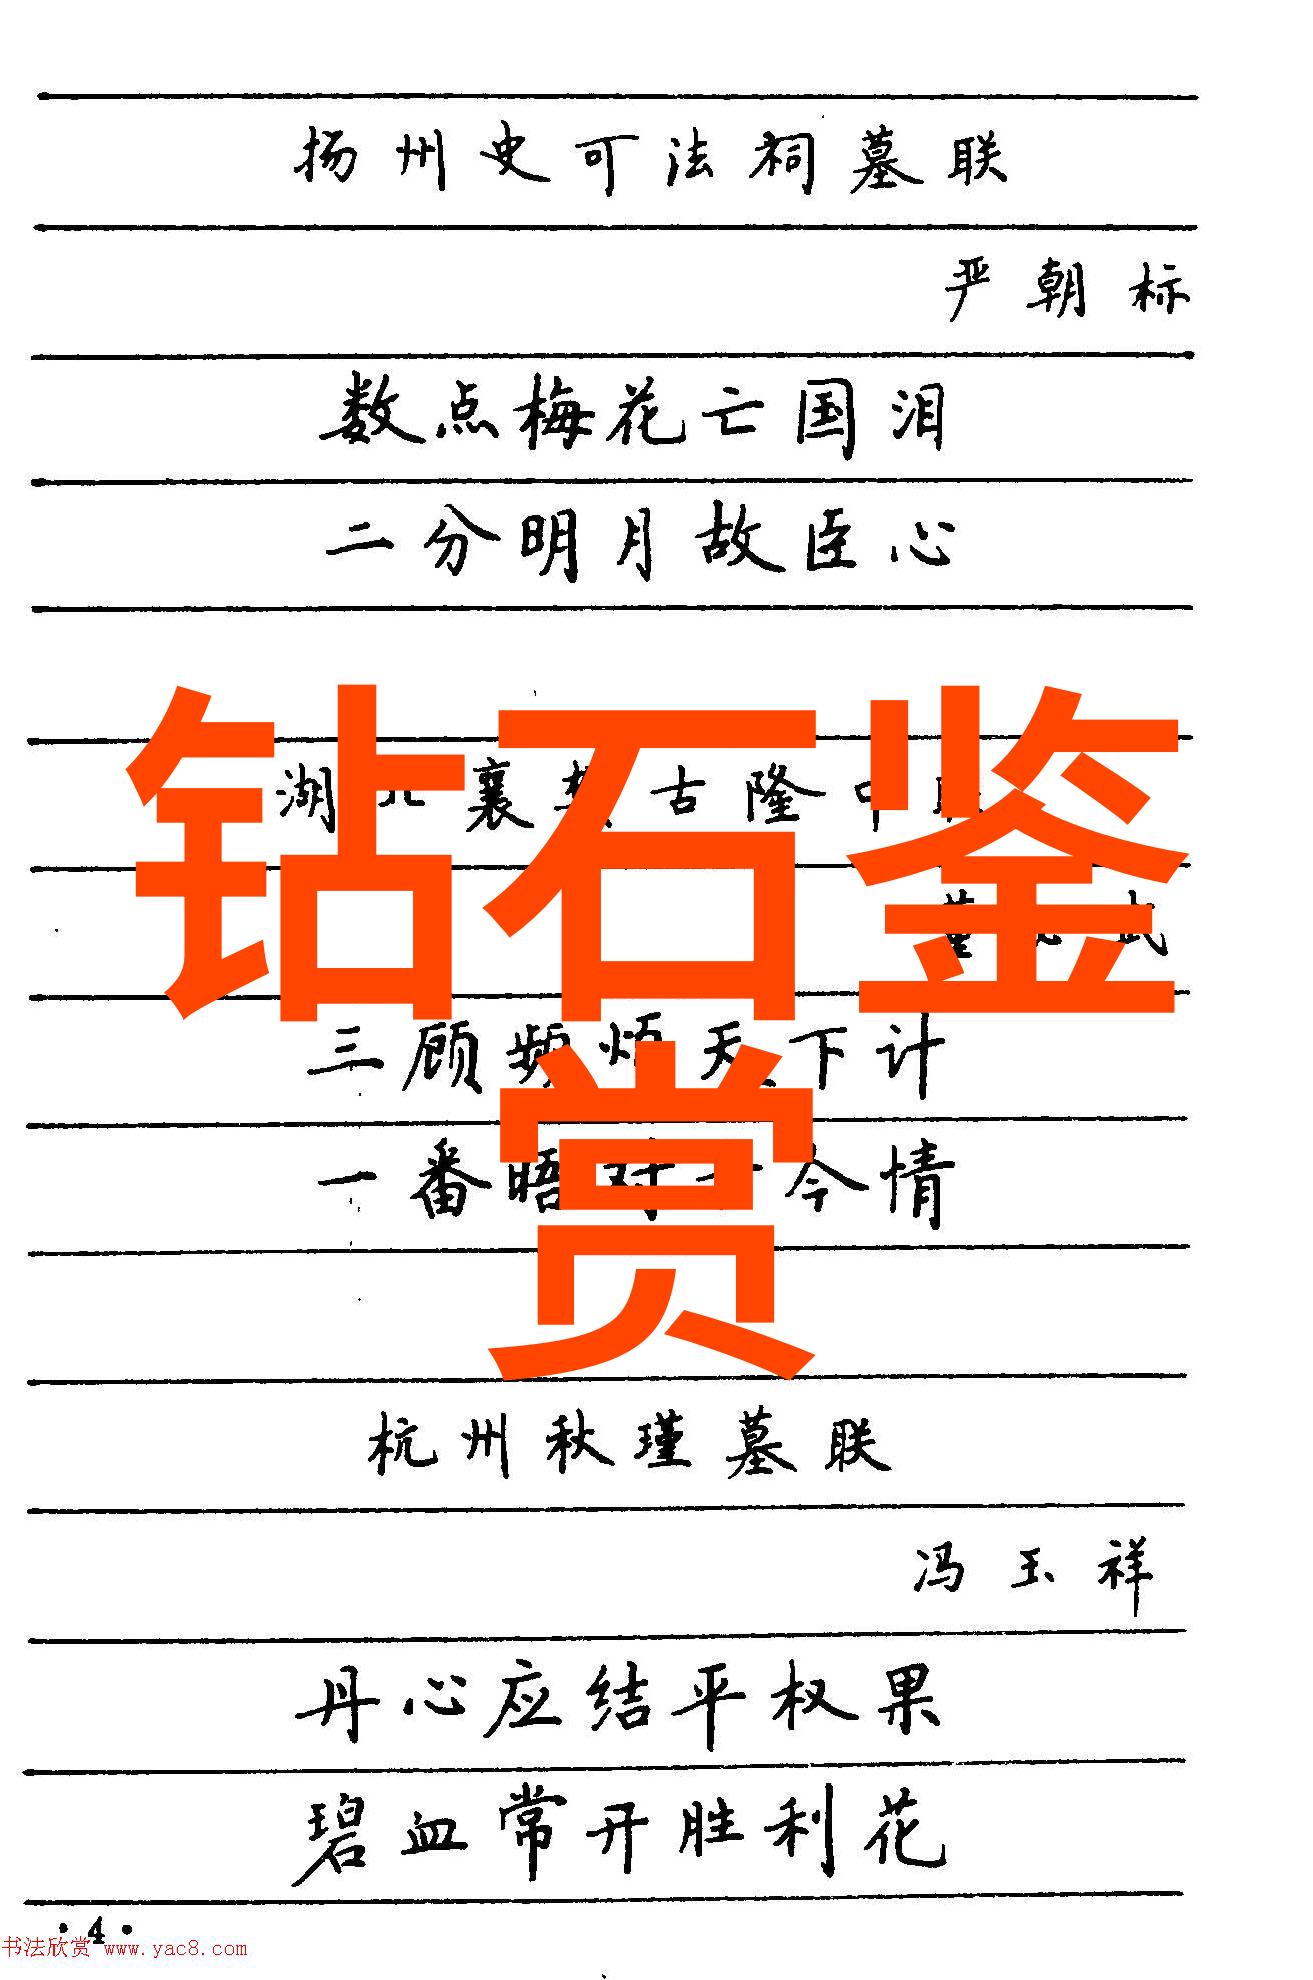 扬州史可法祠墓联
严朝标
数点梅花亡国泪
二分明月故臣心
钻石鉴
赏
湖北襄樊古隆中联
董武
三顾频烦天下计
一番晤对古今情
杭州秋瑾墓联
冯玉祥
丹心应结平权果
碧血常开胜利花
·4·
书法欣赏 www.yac8.com